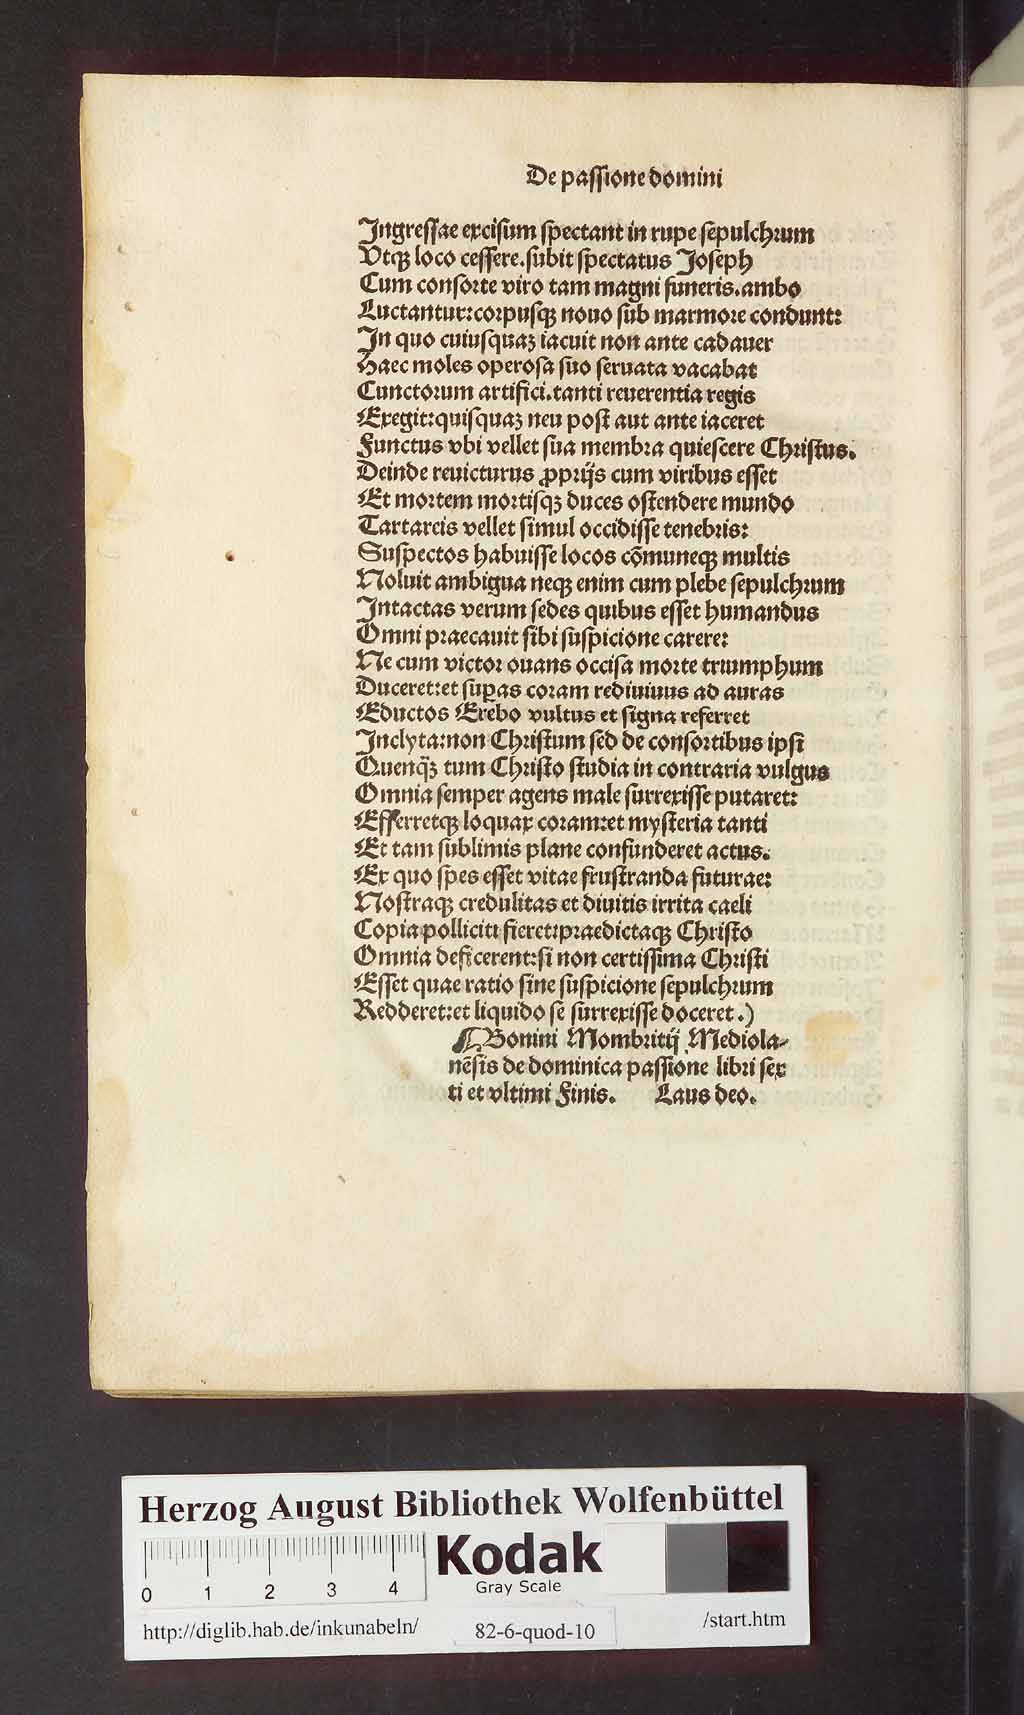 De passione domini
Ingressae excisum spectant in rupe sepulchrum
Vtqꝫ loco cessere. subit spectatus Joseph
Cum consorte viro tam magni funeris. ambo
Luctantur: corpusqꝫ nouo sub marmore condunt:
In quo cuiusquaꝫ iacuit non ante cadauer
Haec moles operosa suo seruata vacabat
Cunctorum artifici. tanti reuerentia regis
Exegit: quisquaꝫ neu post aut ante iaceret
Functus vbi vellet sua membra quiescere Christus.
Deinde reuicturus ꝓprijs cum viribus esset
Et mortem mortisqꝫ duces ostendere mundo
Tartareis vellet simul occidisse tenebris:
Suspectos habuisse locos cõmuneqꝫ multis
Noluit ambigua neqꝫ enim cum plebe sepulchrum
Intactas verum sedes quibus esset humandus
Omni praecauit sibi suspicione carere:
Ne cum victor ouans occisa morte triumphum
Duceret: et suꝑas coram rediuiuus ad auras
Eductos Erebo vultus et signa referret
Inclyta: non Christum sed de consortibus ipsi
Quenq̃ꝫ tum Christo studia in contraria vulgus
Omnia semper agens male surrexisse putaret:
Efferretqꝫ loquax coram: et mysteria tanti
Et tam sublimis plane confunderet actus.
Ex quo spes esset vitae frustranda futurae:
Nostraqꝫ credulitas et diuitis irrita caeli
Copia polliciti fieret: praedictaqꝫ Christo
Omnia deficerent: si non certissima Christi
Esset quae ratio sine suspicione sepulchrum
Redderet: et liquido se surrexisse doceret.)
¶ Bonini Mombritij Mediola-
nẽsis de dominica passione libri sex
ti et vltimi Finis. Laus deo.
Herzog August Bibliothek Wolfenbüttel
0 1 2 3 4
Kodak
Gray Scale
http://diglib.hab.de/inkunabeln/ 82-6-quod-10 /start.htm